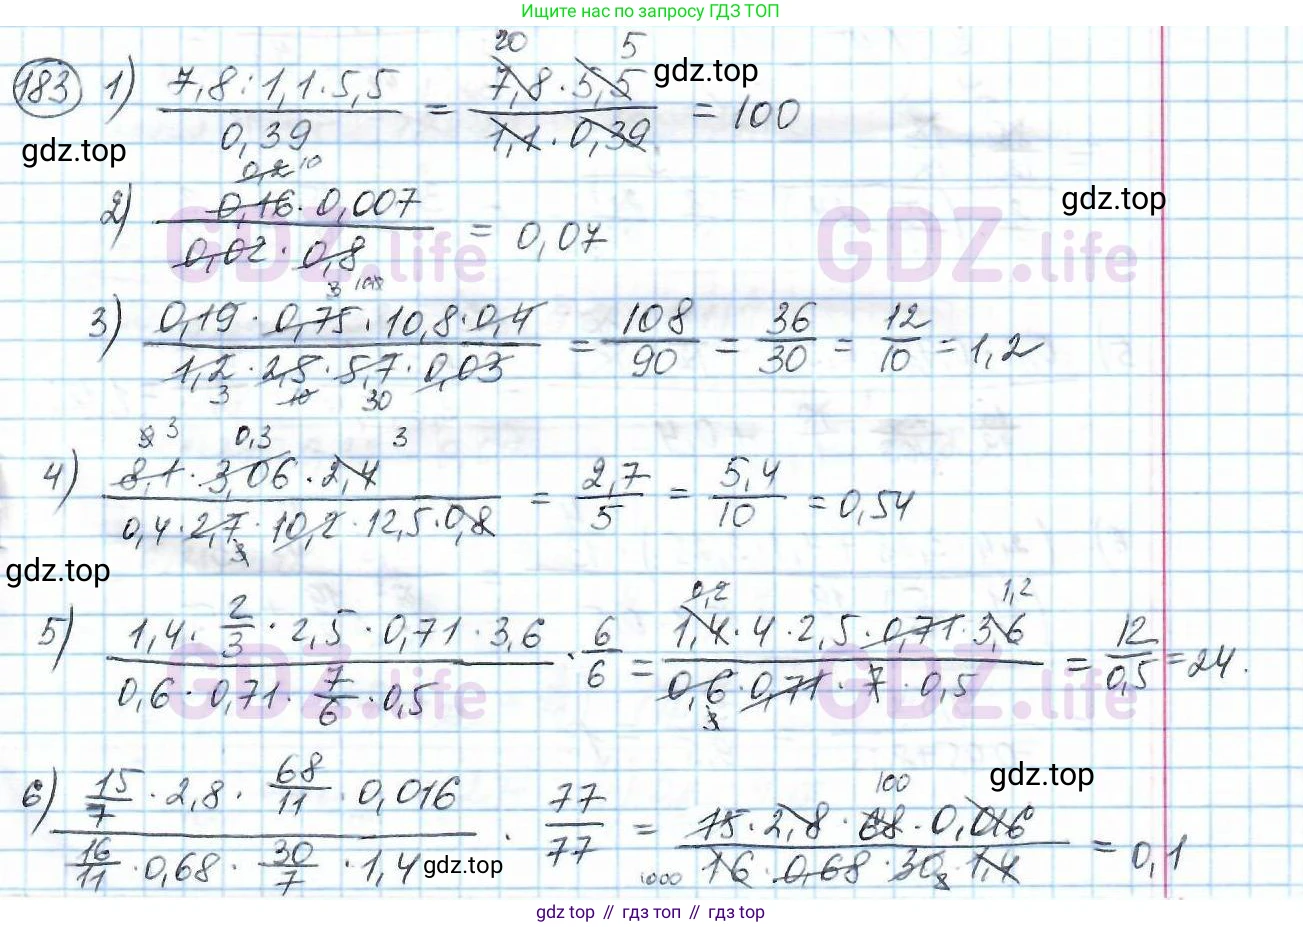 Ищите нас по запросу ГДЗ ТОП
183 1) 7,8 : 1,1 · 5,5 / 0,39 = 7,8 · 5,5 / 1,1 · 0,39 = 100
20 5
gdz.top
gdz.top
2) 0,16 · 0,007 / 0,02 · 0,8 = 0,07
0,2 10
gdz.top
GDZ.life GDZ.life
3) 0,19 · 0,75 · 10,8 · 0,4 / 1,2 · 2,5 · 5,7 · 0,03 = 108 / 90 = 36 / 30 = 12 / 10 = 1,2
3 108
3 10 30
4) 8,1 · 3,06 · 2,4 / 0,4 · 2,7 · 10,2 · 12,5 · 0,8 = 2,7 / 5 = 5,4 / 10 = 0,54
3 0,3 3
3
gdz.top
5) 1,4 · 2/3 · 2,5 · 0,71 · 3,6 / 0,6 · 0,71 · 7/6 · 0,5 · 6/6 = 1,4 · 4 · 2,5 · 0,71 · 3,6 / 0,6 · 0,71 · 7 · 0,5 = 12 / 0,5 = 24.
0,2 1,2
3
GDZ.life GDZ.life
6) 15/7 · 2,8 · 68/11 · 0,016 / 16/11 · 0,68 · 30/7 · 1,4 · 77/77 = 15 · 2,8 · 68 · 0,016 / 16 · 0,68 · 30 · 1,4 = 0,1
100
1000
gdz.top
gdz.top
gdz top // гдз топ // gdz top